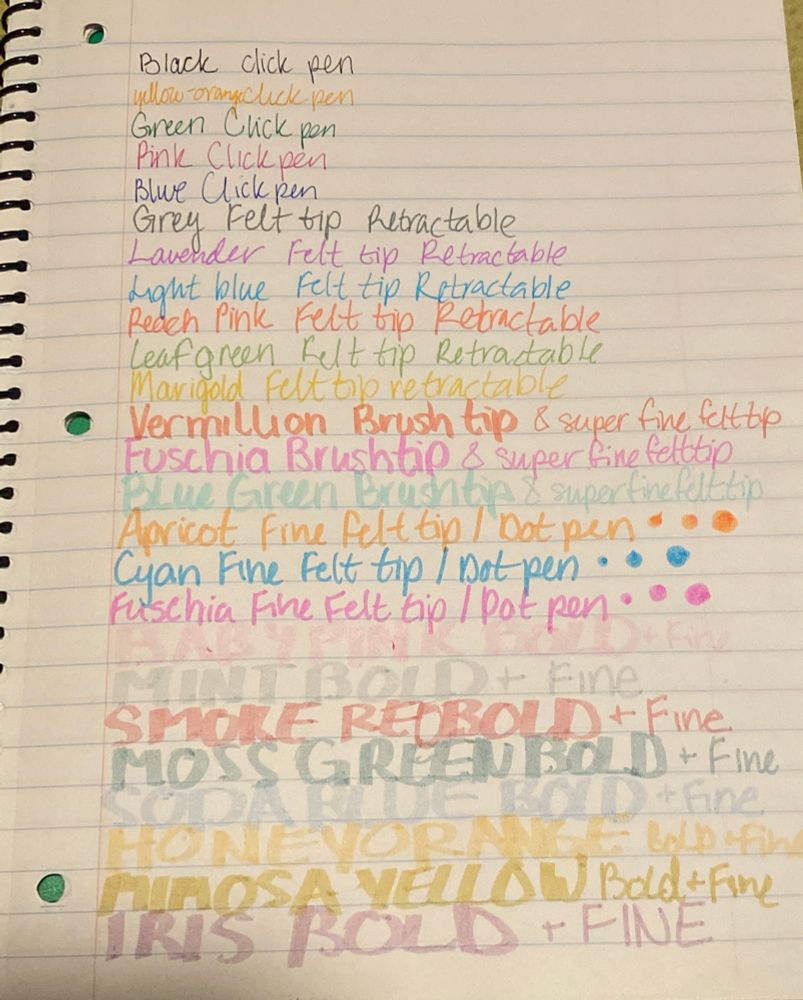 Black click pen
yellow-orange click pen
Green Click pen
Pink Click pen
Blue Click pen
Grey Felt tip Retractable
Lavender Felt tip Retractable
Light blue Felt tip Retractable
Peach Pink Felt tip Retractable
Leaf green Felt tip Retractable
Marigold Felt tip retractable
Vermillion Brush tip & super fine felt tip
Fuschia Brush tip & super fine felt tip
Blue Green Brush tip & super fine felt tip
Apricot Fine Felt tip / Dot pen
Cyan Fine Felt tip / Dot pen
Fuschia Fine Felt tip / Dot pen
BABY PINK BOLD + Fine
MINT BOLD + Fine
SMOKE RED BOLD + Fine
MOSS GREEN BOLD + Fine
SODA BLUE BOLD + Fine
HONEY ORANGE BOLD + Fine
MIMOSA YELLOW Bold + Fine
IRIS BOLD + FINE